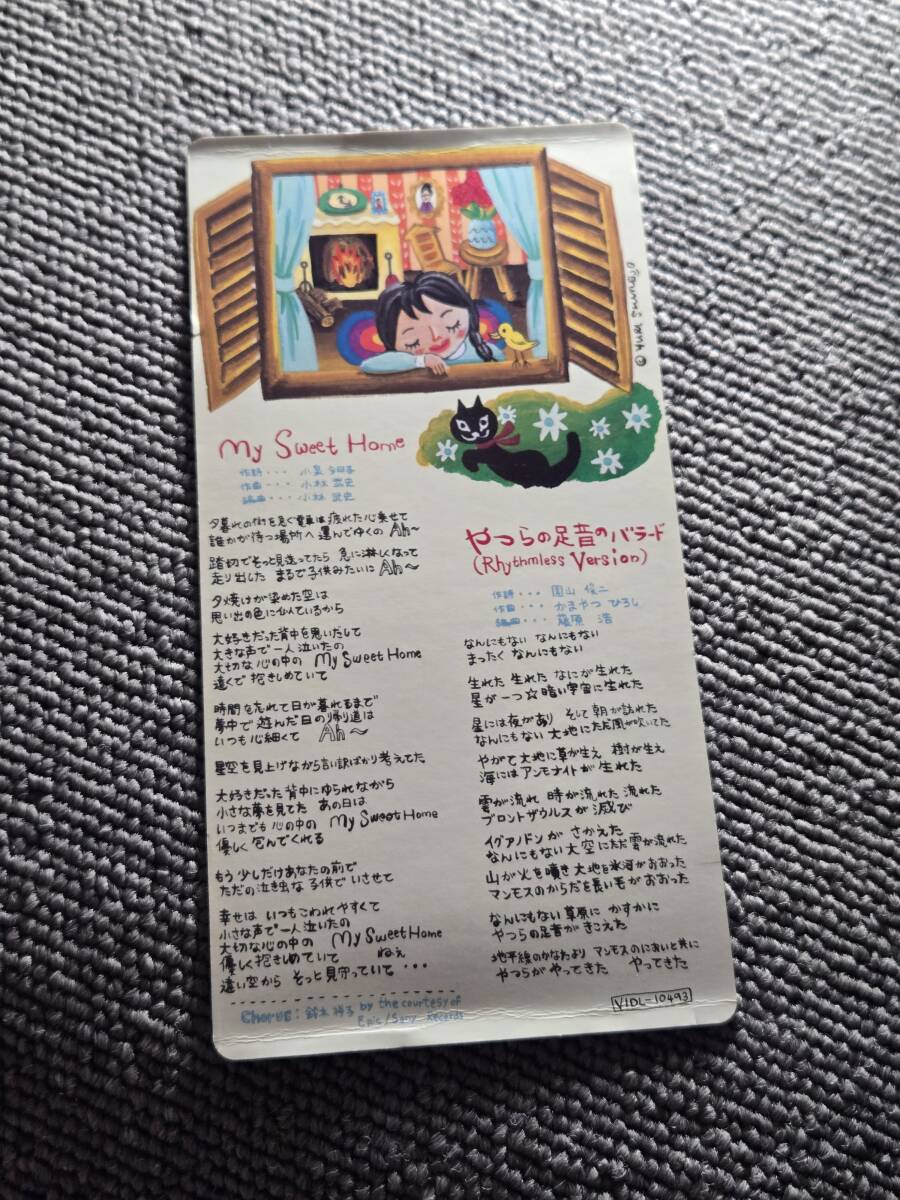 © YURI SUGINO
My Sweet Home
作詩・・・小泉 今日子
作曲・・・小林 武史
編曲・・・小林 武史
夕暮れの街を急ぐ電車は疲れた心乗せて
誰かが待つ場所へ運んでゆくの Ah~
踏切でそっと見送ってたら 急に淋しくなって
走り出した まるで子供みたいに Ah~
夕焼けが染めた空は
思い出の色に似ているから
大好きだった背中を思いだして
大きな声で一人泣いたの
大切な心の中の My Sweet Home
遠くで抱きしめていて
時間を忘れて日が暮れるまで
夢中で遊んだ日の帰り道は
いつも心細くて Ah~
星空を見上げながら言い訳ばかり考えてた
大好きだった背中にゆられながら
小さな夢を見てた あの日は
いつまでも心の中の My Sweet Home
優しく包んでくれる
もう少しだけあなたの前で
ただの泣き虫な子供でいさせて
幸せは いつもこわれやすくて
小さな声で一人泣いたの
大切な心の中の My Sweet Home
優しく抱きしめていて ねぇ
遠い空から そっと見守っていて・・・
Chorus: 鈴木 祥子 by the courtesy of
Epic/Sony Records
やつらの足音のバラード
(Rhythmless Version)
作詩・・・園山 俊二
作曲・・・かまやつ ひろし
編曲・・・藤原 浩
なんにもない なんにもない
まったく なんにもない
生れた 生れた なにが生れた
星が一つ☆暗い宇宙に生れた
星には夜があり そして朝が訪れた
なんにもない大地にただ風が吹いてた
やがて大地に草が生え 樹が生え
海にはアンモナイトが生れた
雲が流れ 時が流れた 流れた
ブロントザウルスが滅び
イグアノドンが さかえた
なんにもない大空にただ雲が流れた
山が火を噴き 大地を氷河がおおった
マンモスのからだを長い毛がおおった
なんにもない草原に かすかに
やつらの足音がきこえた
地平線のかなたより マンモスのにおいと共に
やつらがやってきた やってきた
VIDL-10493